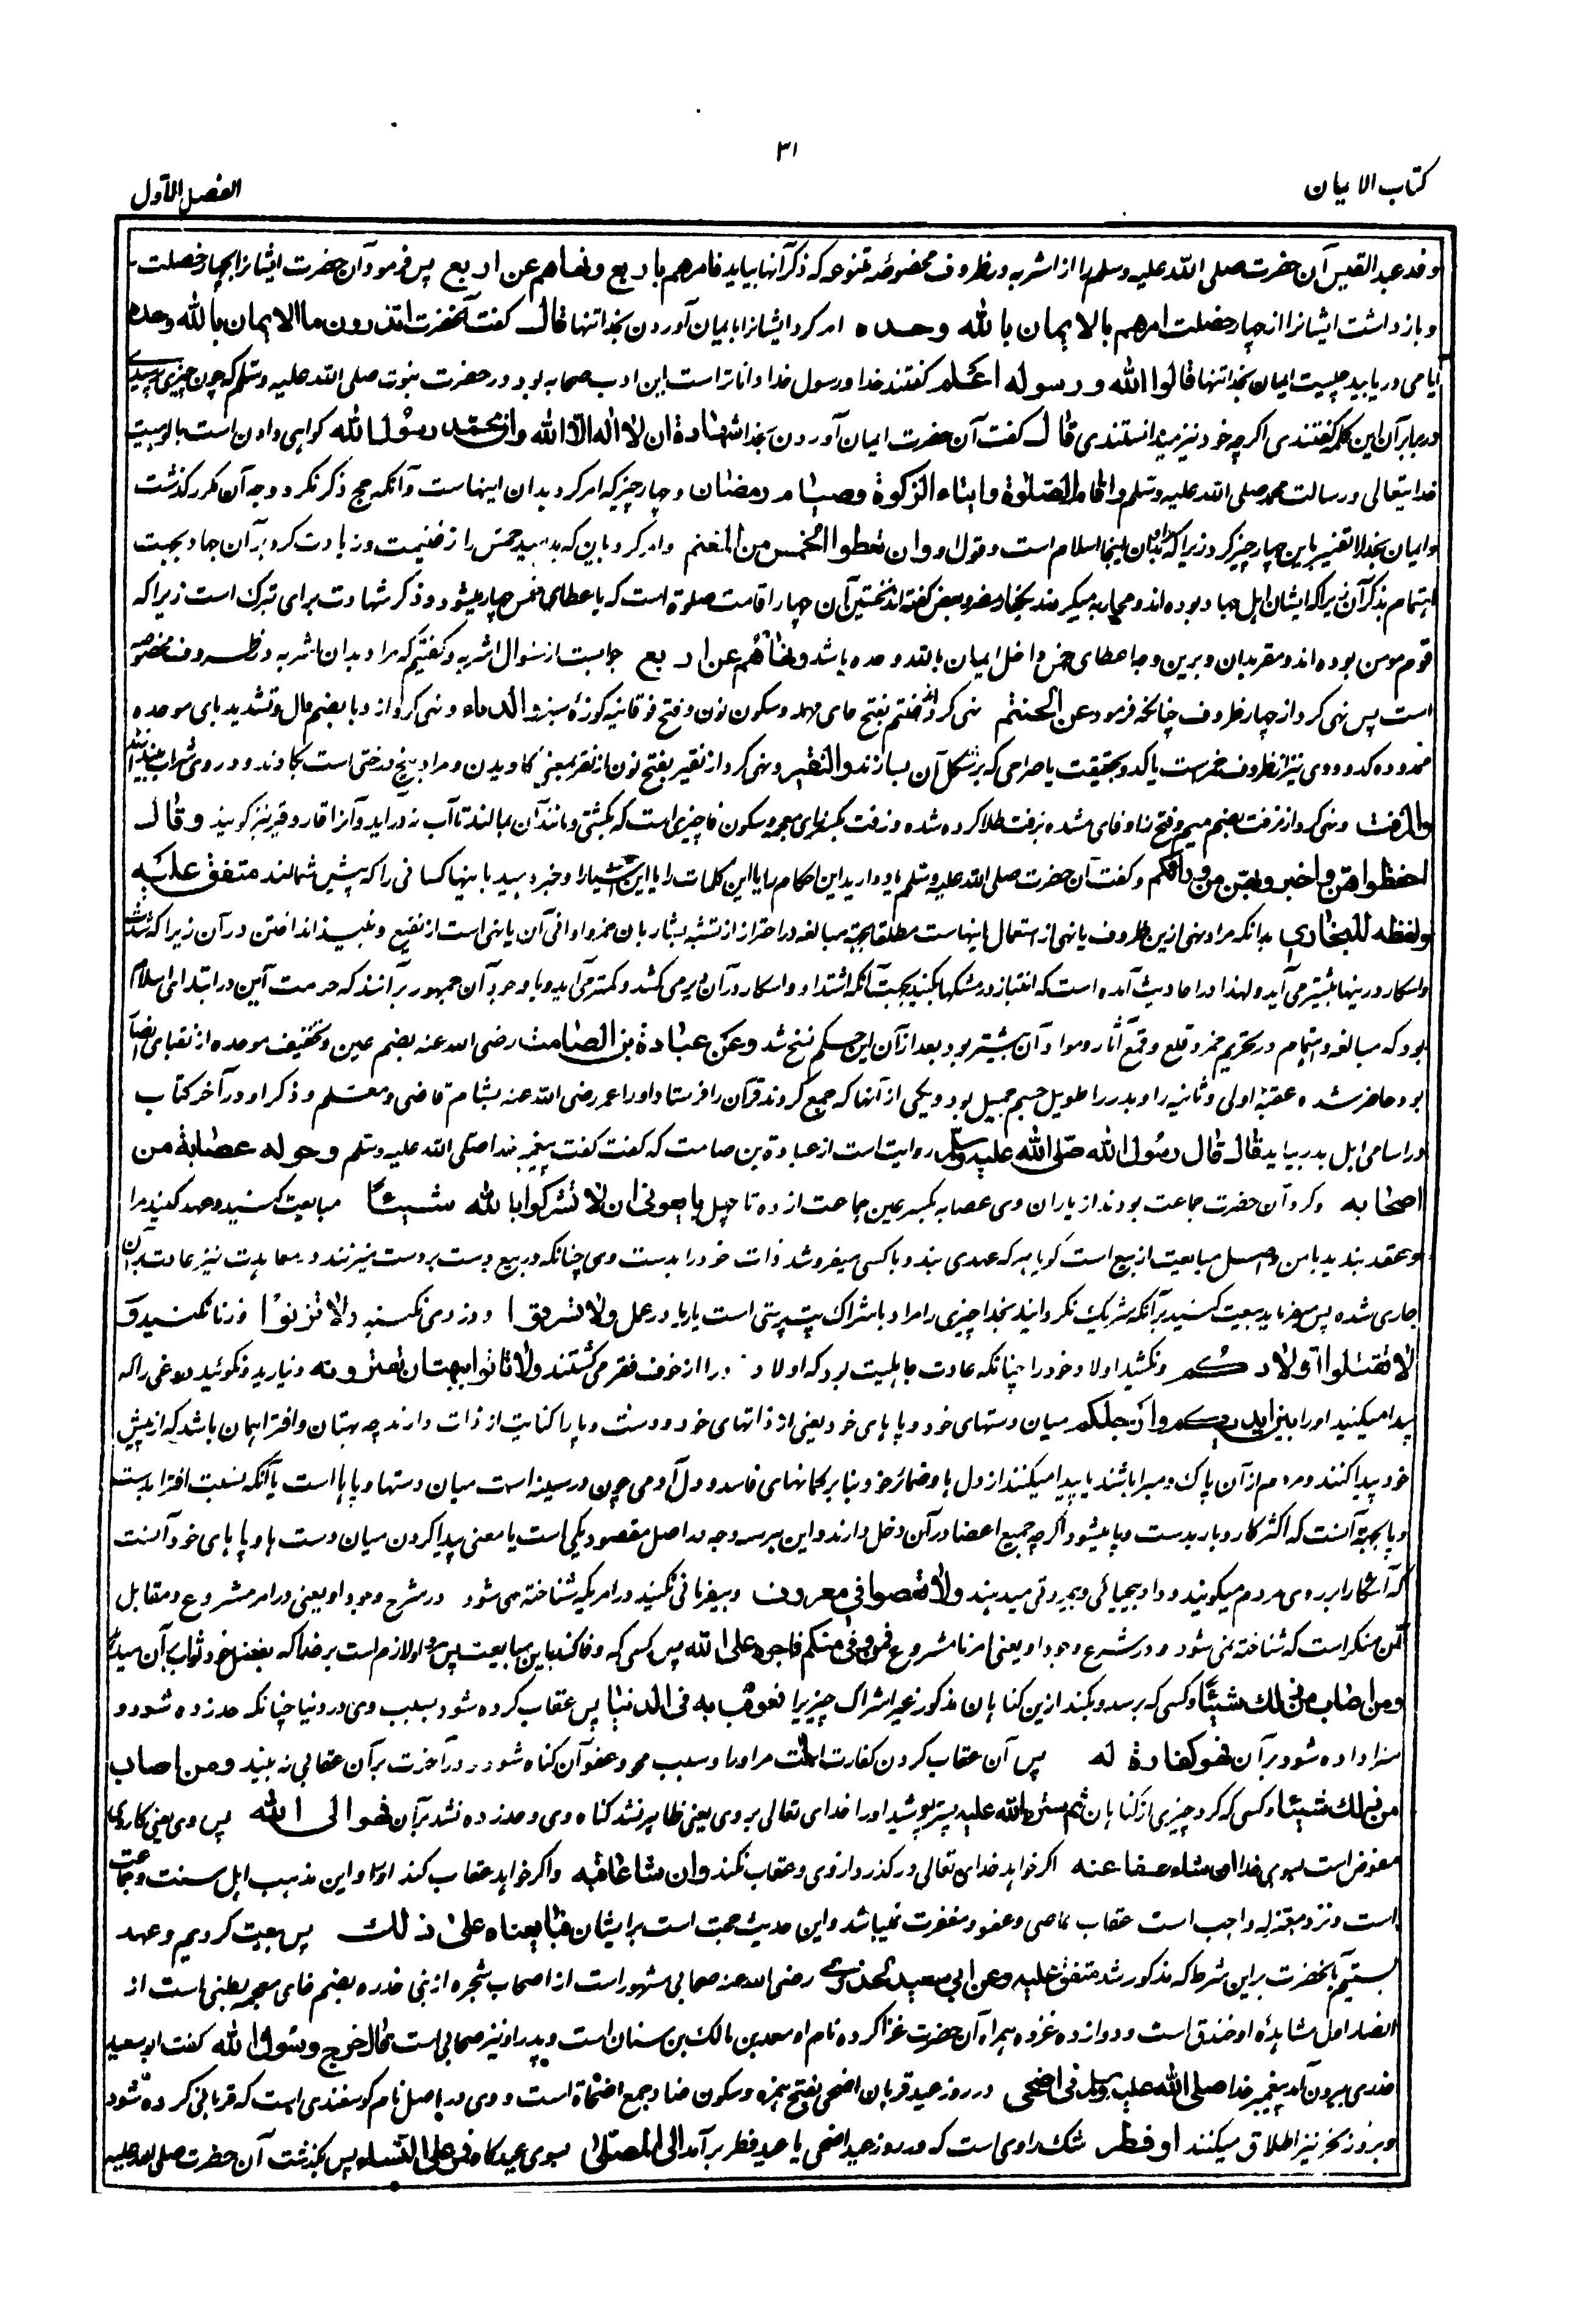 ۳۱
کتاب الایمان
الفصل الاول
وفد عبدالقیس آن حضرت صلی اللہ علیہ وسلم را از اشربہ در ظروف مخصوصہ متنوعہ کہ ذکر آنہا بیاید فامرهم باربع ونهاهم عن اربع پس فرمود آن حضرت ایشانرا بچہار خصلت
و باز داشت ایشانرا از چہار خصلت امرهم بالایمان بالله وحده امر کرد ایشانرا بایمان آوردن بخدا تنہا قال گفت آنحضرت اتدرون ما الایمان بالله وحده
آیا می دریابید چیست ایمان بخدا تنہا قالوا الله ورسوله اعلم گفتند خدا و رسول خدا داناتر است این ادب صحابہ بود در حضرت نبوت صلی اللہ علیہ وسلم کہ چون چیزی پرسیدی
در برابر آن این کلمہ گفتندی اگرچہ خود نیز میدانستندی قال گفت آن حضرت ایمان آوردن بخدا شهادة ان لا اله الا الله وان محمد رسول الله گواہی دادن است بالوہیت
خدایتعالی و رسالت محمد صلی اللہ علیہ وسلم واقام الصلوة وایتاء الزکوة وصیام رمضان و چہار چیز کہ امر کرد بدان اینہاست و آنکہ حج ذکر نکرد وجہ آن مکرر گذشت
و ایمان بخدا را تفسیر باین چہار چیز کرد زیرا کہ مراد بایمان اینجا اسلام است و قول او وان تعطوا الخمس من المغنم و امر کرد باین کہ بدہید خمس را از غنیمت و زیادت کرد بر آن چہار بجہت
اہتمام بذکر آن زیرا کہ ایشان اہل جہاد بودہ اند و محاربہ میکردند بکفار مضر و بعضی گفتہ اند نخستین آن چہار اقامت صلوة است کہ با عطای خمس چہار میشود و ذکر شہادت برای تبرک است زیرا کہ
قوم مومن بودہ اند و مقر بدان و برین وجہ اعطای خمس داخل ایمان باللہ وحدہ باشد ونهاهم عن اربع جوابست از سوال اشربہ و گفتیم کہ مراد بدان اشربہ در ظروف مخصوصہ
است پس نہی کرد از چہار ظروف چنانکہ فرمود عن الحنتم نہی کرد از حنتم بفتح حای مہملہ و سکون نون و فتح فوقانیہ کوزۂ سبز والدباء و نہی کرد از دبا بضم دال و تشدید بای موحدہ
ممدودہ کدو و وی نیز از ظروف خمرست یا کدو بحقیقت یا صراحی کہ بر شکل آن بسازند والنقیر و نہی کرد از نقیر بفتح نون از نقر بمعنی کاویدن و مراد بیخ درختی است بکاوند و در وی شراب
والمزفت و نہی کرد از مزفت بضم میم و فتح زا و فای مشددہ بزفت طلا کردہ شدہ و زفت بکسر زای معجمہ و سکون فا چیزی است کہ بکشتی و مانند آن بمالند تا آب نہ درآید و آنرا قار و قیر نیز گویند وقال
احفظوا هن واخبروا بهن من وراءکم و گفت آن حضرت صلی اللہ علیہ وسلم یاد دارید این احکام را یا این کلمات را یا این اشیا را و خبر دہید باینہا کسانی را کہ پیش شمااند متفق علیه
ولفظه للبخاری بدانکہ مراد نہی ازین ظروف یا نہی از استعمال اینہاست مطلقا بجہت مبالغہ در احتراز از تشبہ بشاربان خمر و اوانی آن یا نہی است از نقیع و نبیذ انداختن در آن زیرا کہ شدت
و اسکار در ینہا بیشتر می آید و لہذا در احادیث آمدہ است کہ انتباذ در مشکہا بکنید بجہت آنکہ اشتداد و اسکار در آن دیر می کشد و کمتر می آید و با وجود آن جمہور برآنند کہ حرمت این در ابتدای اسلام
بود کہ مبالغہ و اہتمام در تحریم خمر و قلع و قمع آثار و مواد آن بیشتر بود بعد از آن این حکم نسخ شد وعن عبادة بن الصامت رضی اللہ عنہ بضم عین و تخفیف موحدہ از نقبای انصار
بود حاضر شدہ عقبۂ اولی و ثانیہ را و بدر را طویل جسیم جمیل بود و یکی از آنہا کہ جمع کردند قرآن را فرستاد او را عمر رضی اللہ عنہ بشام قاضی و معلم و ذکر او در آخر کتاب
در اسامی اہل بدر بیاید قال قال رسول الله صلی الله علیه وسلم روایت است از عبادة بن صامت کہ گفت گفت پیغمبر خدا صلی اللہ علیہ وسلم وحوله عصابة من
اصحابه و گرد آن حضرت جماعت بودند از یاران وی عصابہ بکسر عین جماعت از دہ تا چہل بایعونی ان لا تشرکوا بالله شیئا مبایعت کنید و عہد کنید مرا
و عقد بندید با من و اصل مبایعت از بیع است گویا ہر کہ عہدی بندد با کسی میفروشد ذات خود را بدست وی چنانکہ در بیع دست بر دست میزنند در معاہدت نیز عادت بدان
جاری شدہ پس میفرماید بیعت کنید بر آنکہ شریک نگردانید بخدا چیزی را مراد باشراک بت پرستی است یا ریا در عمل ولا تسرقوا و دزدی نکنید ولا تزنوا و زنا نکنید و
لا تقتلوا اولادکم و نکشید اولاد خود را چنانکہ عادت جاہلیت بود کہ اولاد را از خوف فقر می کشتند ولا تاتوا ببهتان تفترونه و نیارید و نگوئید دروغی را کہ
پیدا میکنید او را بین ایدیکم وارجلکم میان دستہای خود و پایہای خود یعنی از ذاتہای خود و دست و پا را کنایت از ذات دارند چہ بہتان و افترا ہمان باشد کہ از پیش
خود پیدا کنند و مردم از آن پاک و مبرا باشند یا پیدا میکنند از دل ہا و ضمائر خود بنا بر گمانہای فاسد و دل آدمی چون در سینہ است میان دستہا و پایہا است یا آنکہ نسبت افترا بدست
و پا بجہت آنست کہ اکثر کار و بار بدست و پا میشود اگرچہ جمیع اعضا در آن دخل دارند و این ہر سہ وجہ در اصل مقصود یکی است یا معنی پیدا کردن میان دست ہا و پایہای خود آنست
کہ آشکارا بر روی مردم میگویند و داد بیحیائی و بیمروتی میدہند ولا تعصوا فی معروف و بیفرمانی نکنید در امریکہ شناختہ می شود در شرع وجود او یعنی در امر مشروع و مقابل
آن منکر است کہ شناختہ نمی شود در شرع وجود او یعنی امر نامشروع فمن وفی منکم فاجره علی الله پس کسی کہ وفا کند باین مبایعت پس مزد او لازم است بر خدا کہ بفضل خود ثواب بر آن میدہد
ومن اصاب من ذلک شیئا و کسی کہ برسد و بکند ازین گناہان مذکور غیر اشراک چیزیرا فعوقب به فی الدنیا پس عقاب کردہ شود بسبب وی در دنیا چنانکہ حد زدہ شود و
سزا دادہ شود بر آن فهو کفارة له پس آن عقاب کردن کفارت است مر او را و سبب محو و عفو آن گناہ شود در آخرت بر آن عقابی نہ بیند ومن اصاب
من ذلک شیئا و کسی کہ کرد چیزی از گناہان ثم ستره الله علیه پستر پوشید او را خدای تعالی بر وی یعنی ظاہر نشد گناہ وی و حد زدہ نشد بر آن فهو الی الله پس وی یعنی کار وی
مفوض است بسوی خدا ان شاء عفا عنه اگر خواہد خدای تعالی در گذرد از وی و عقاب نکند وان شاء عاقبه و اگر خواہد عقاب کند او را و این مذہب اہل سنت و جماعت
است و نزد معتزلہ واجب است عقاب عاصی و عفو و مغفرت نمیباشد و این حدیث حجت است بر ایشان فبایعناه علی ذلک پس بیعت کردیم و عہد
بستیم بآنحضرت بر این شرط کہ مذکور شد متفق علیه وعن ابی سعید الخدری رضی اللہ عنہ صحابی مشہور است از اصحاب شجرہ از بنی خدرہ بضم خای معجمہ بطنی است از
انصار اول مشاہدۂ او خندق است و دوازدہ غزوہ ہمراہ آن حضرت غزا کردہ نام او سعد بن مالک بن سنان است و پدر او نیز صحابی است قال خرج رسول الله گفت ابو سعید
خدری بیرون آمد پیغمبر خدا صلی الله علیه وسلم فی اضحی در روز عید قربان اضحی بفتح ہمزہ و سکون ضاد جمع اضحاة است و وی در اصل نام گوسفندی است کہ قربانی کردہ شود
و بروز نحر نیز اطلاق میکنند او فطر شک راوی است کہ در روز عید اضحی یا عید فطر برآمد الی المصلی بسوی عید گاہ فمر علی النساء پس بگذشت آن حضرت صلی اللہ علیہ